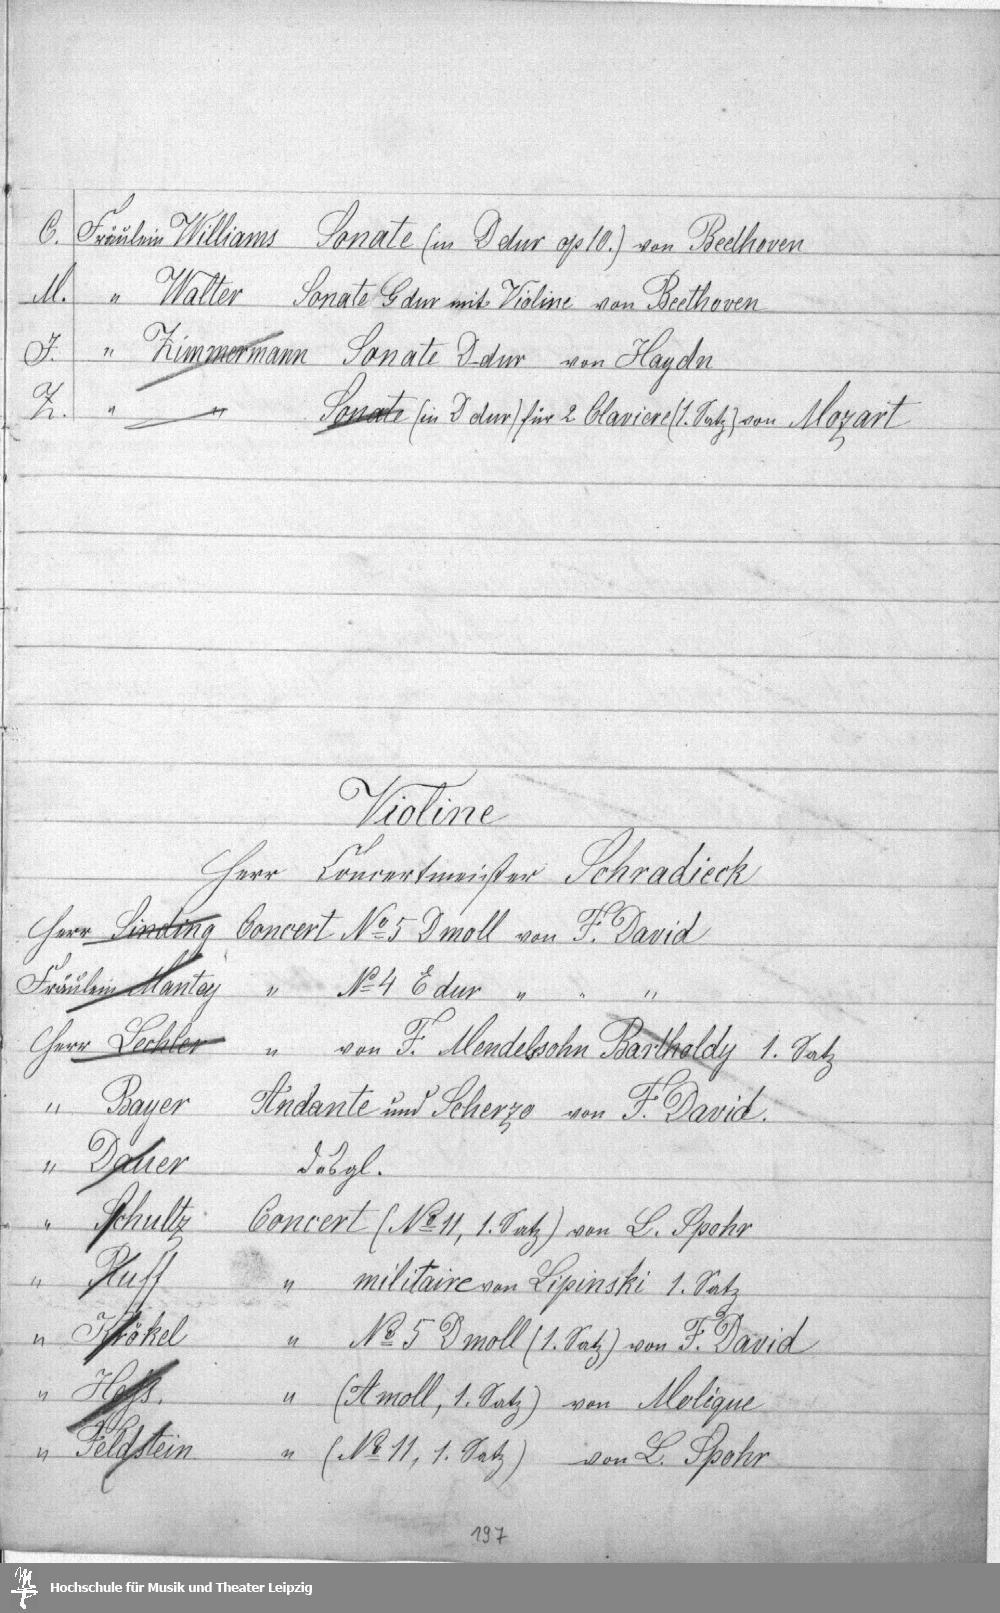 C. Fräulein Williams Sonate (in D dur op 10.) von Beethoven
M. " Walter Sonate G dur mit Violine von Beethoven
J. " Zimmermann Sonate D-dur von Haydn
Z. " " Sonate (in D dur) für 2 Claviere (1. Satz) von Mozart
Violine
Herr Concertmeister Schradieck
Herr Sinding Concert No 5 D moll von F. David
Fräulein Mantey " No 4 E dur " " "
Herr Lechler " von F. Mendelssohn Bartholdy 1. Satz
" Bayer Andante und Scherzo von F. David.
" Dauer dsgl.
" Schultz Concert (No 11, 1. Satz) von L. Spohr
" Ruff " militaire von Lipinski 1. Satz
" Krökel " No 5 D moll (1. Satz) von F. David
" Hess. " (A moll, 1. Satz) von Molique
" Feldstein " (No 11, 1. Satz) von L. Spohr
197
Hochschule für Musik und Theater Leipzig